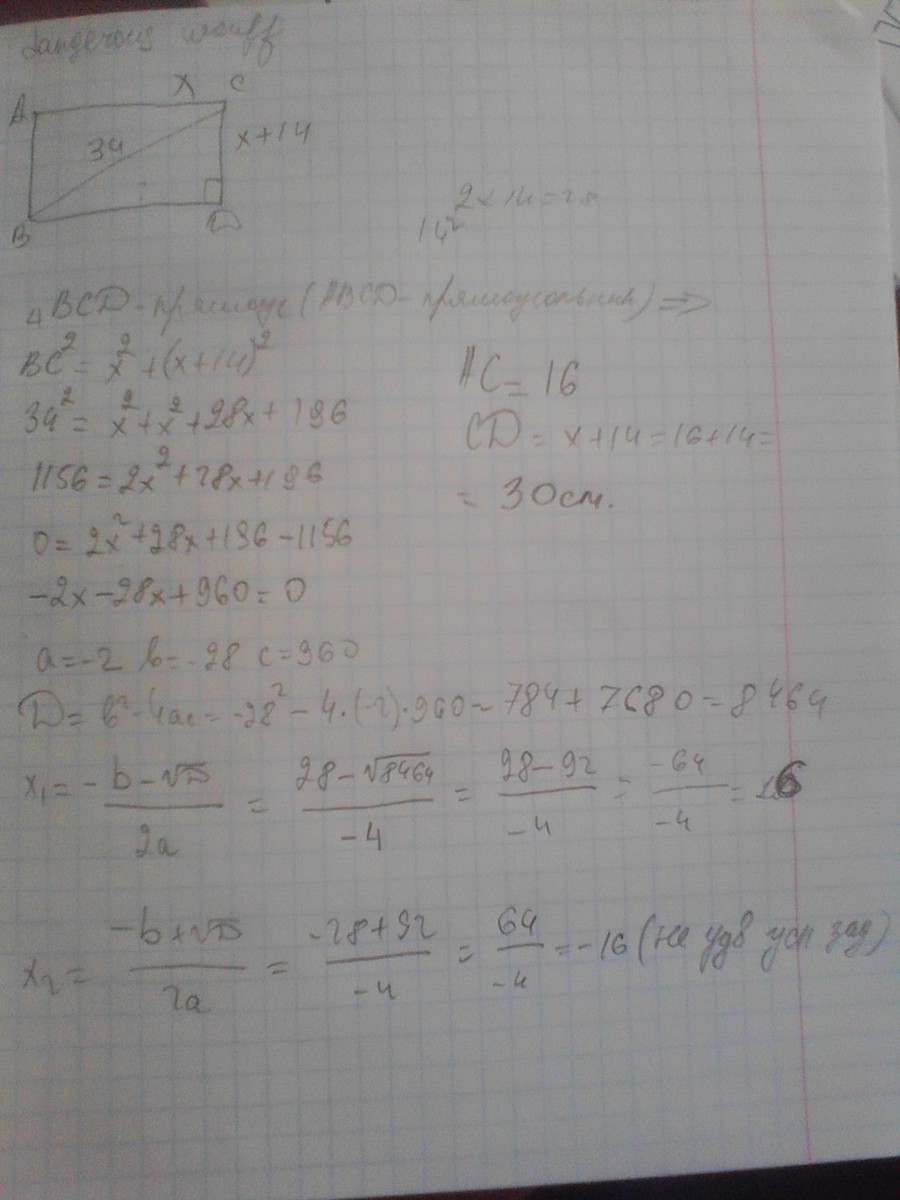 dangerous wouff
A x C
34 x+14
B D
2x14=28
14²
△BCD-прямоуг (ABCD-прямоугольник) =>
BC² = x² + (x+14)²
34² = x² + x² + 28x + 196
1156 = 2x² + 28x + 196
0 = 2x² + 28x + 196 - 1156
-2x - 28x + 960 = 0
a = -2 b = -28 c = 960
D = b² - 4ac = -28² - 4·(-2)·960 = 784 + 7680 = 8464
x₁ = -b-√D / 2a = 28-√8464 / -4 = 28-92 / -4 = -64 / -4 = 16
x₂ = -b+√D / 2a = -28+92 / -4 = 64 / -4 = -16 (не удв усл зад)
AC = 16
CD = x+14 = 16+14 =
= 30см.